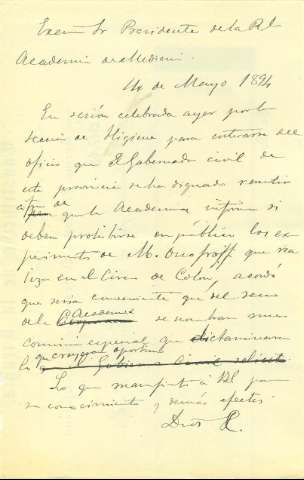 Excmo Sr Presidente de la Rl
Academia de Medicina.
14 de Mayo 1894
En sesión celebrada ayer por la
Sección de Higiene para enterarse del
oficio que El Gobernador civil de
esta provincia se ha dignado remitir
a fin de
que la Academia informe si
deben prohibirse en público los ex
perimentos de M. Onofroff que rea
liza en el Circo de Colón, acordó
que sería conveniente que del seno
Academia
de la Corporacion se nombran una
comisión especial que dictaminara
lo que creyera oportuno
Gobierno Civil solicita
Lo que manifiesto á VE para
su conocimiento y demás efectos.
Dios